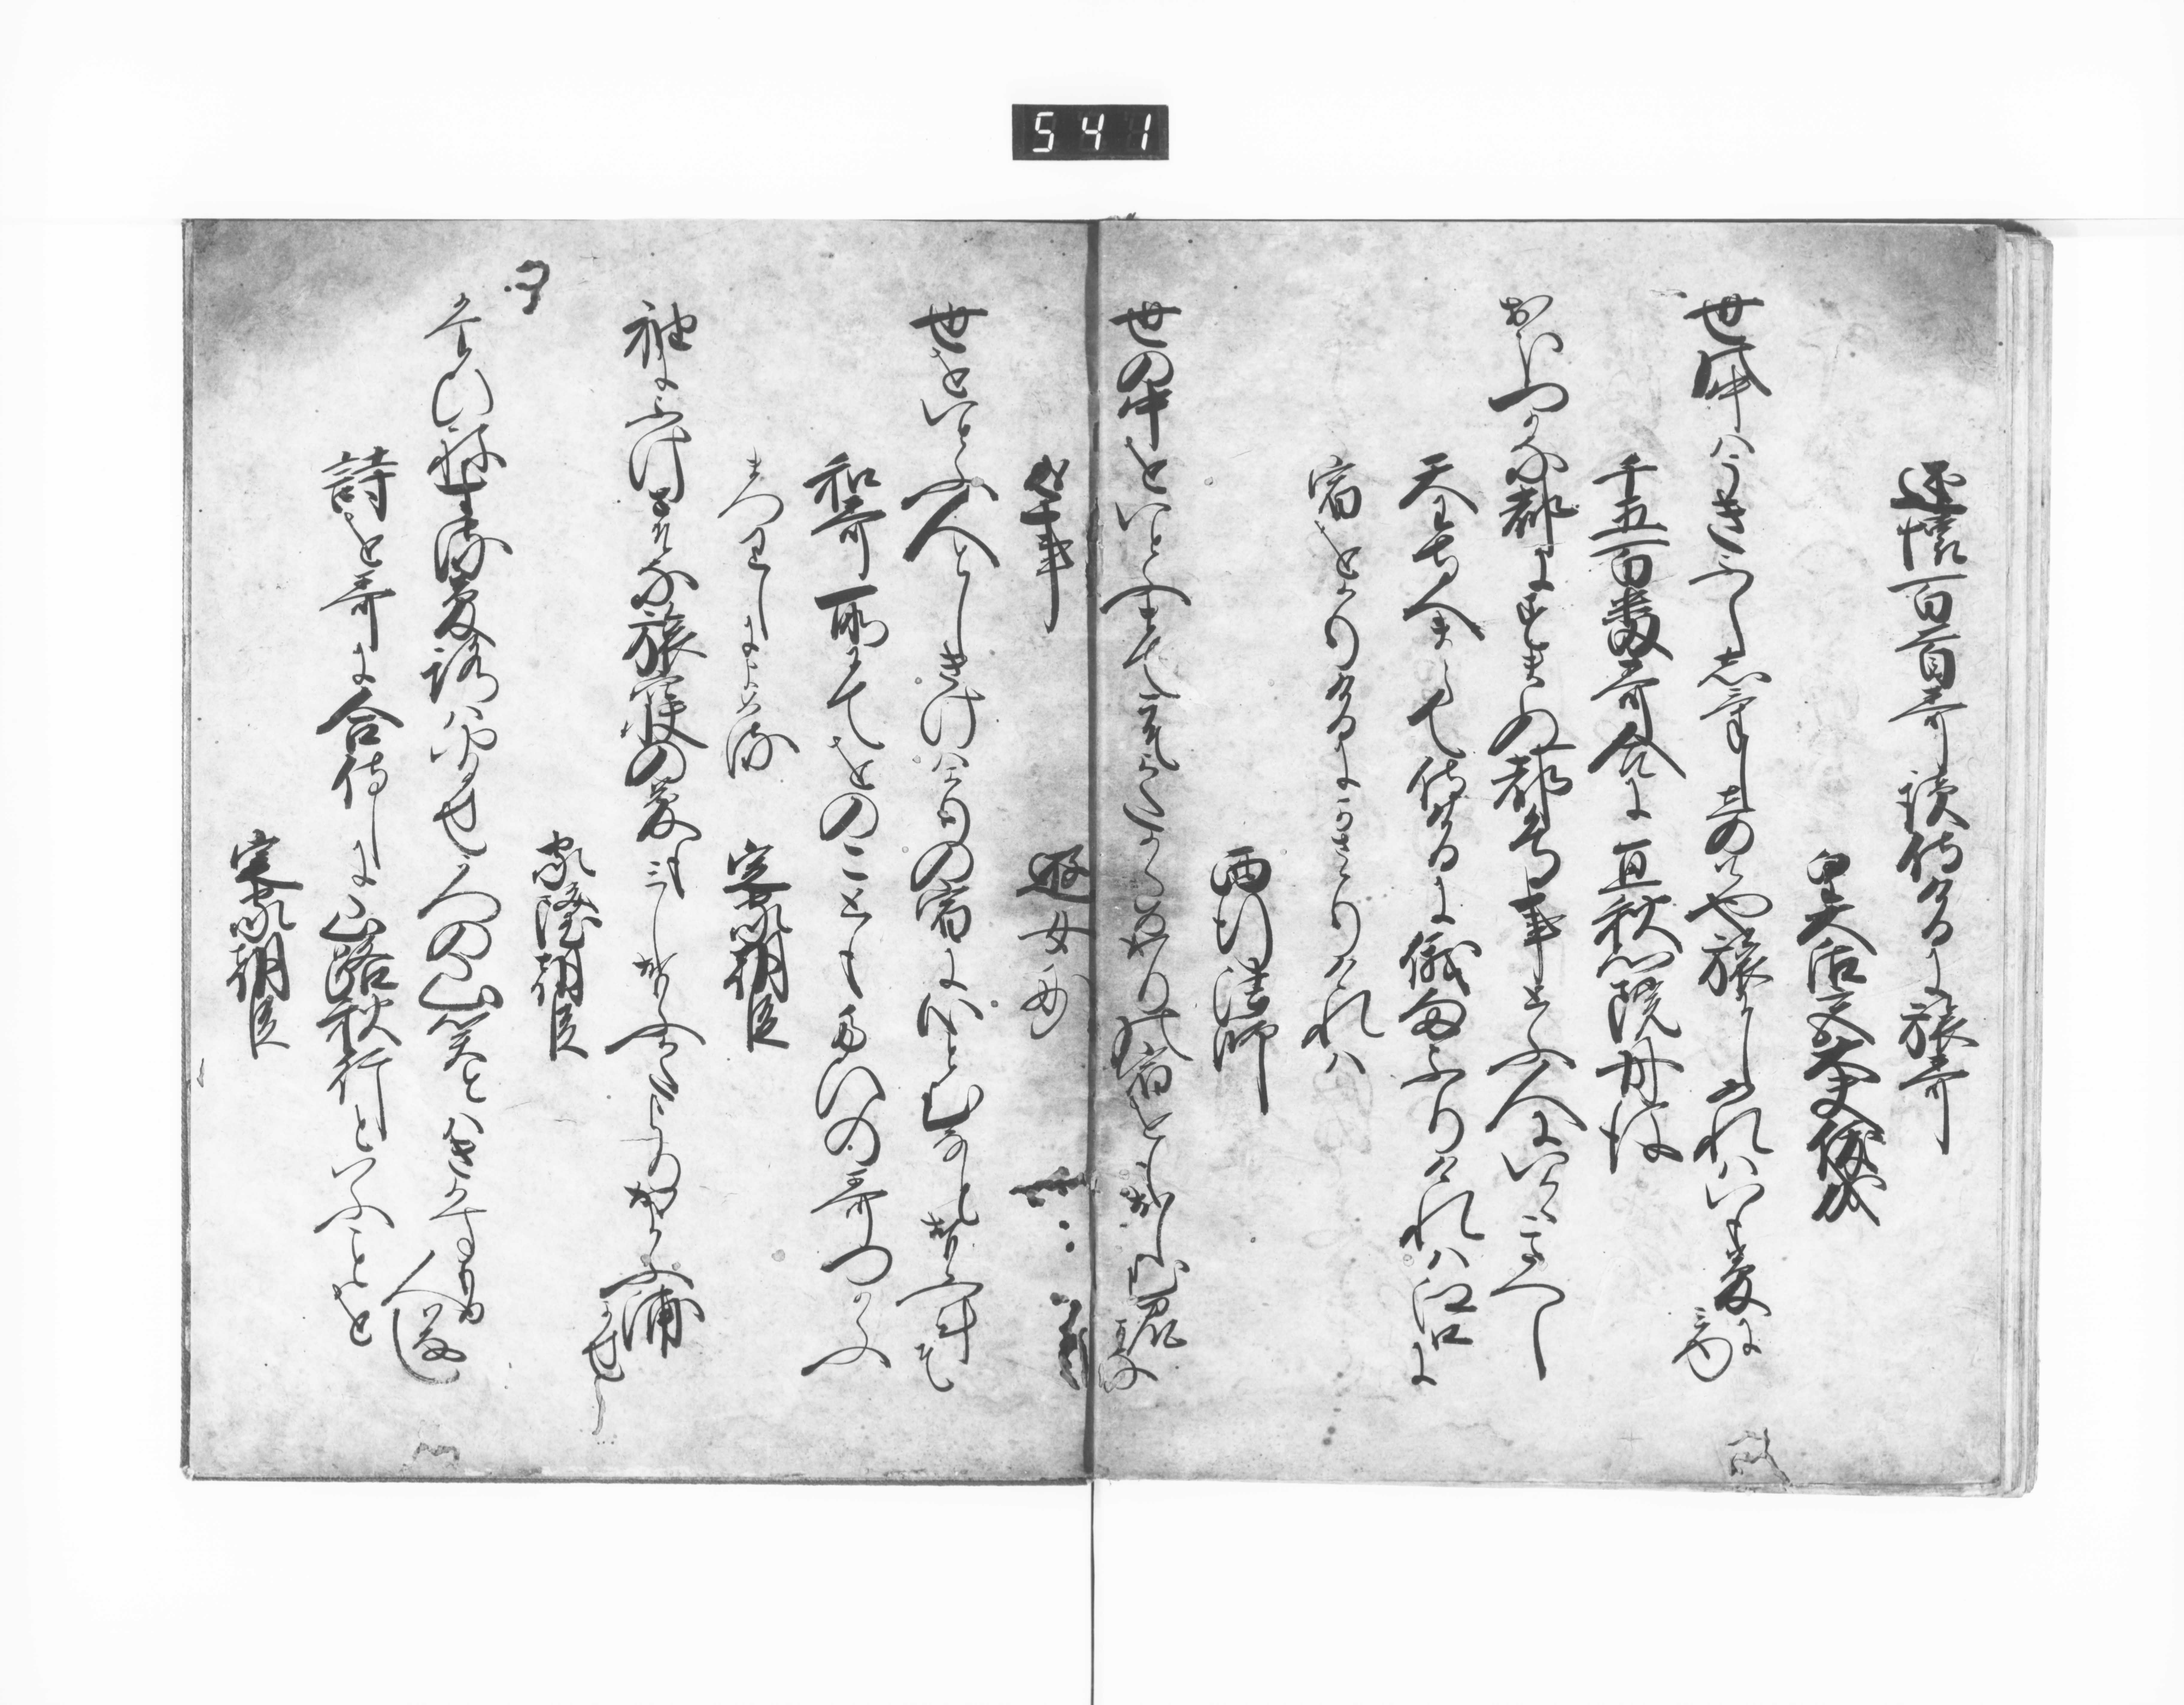 541
述懐百首哥読侍けるに旅哥
皇太后宮大夫俊成
世中はうきふししけししの原や旅にしあれはいも夢に
みゆ
千五百番哥合に 宜秋門院丹後
おほつかな都にすまぬ都鳥事とふ人にいかゝこたへし
天王寺へまうて侍けるに俄雨ふりけれは江口に
宿をかりけるにかさゝりけれは
西行法師
世の中をいとふまてこそかたからめかりの宿をもおしむ君
かな
返事
遊女妙
世をいとふ人としきけはかりの宿に心とむなと思ふ計そ
和哥所にてをのことも旅の哥つかふ
まつりしによめる
定家朝臣
袖にふけさそな旅寝の夢も見し思ふかたよりかよふ浦
かせ
家隆朝臣
たひねする夢路はゆるせうつの山関とはきかすもる
人もなし
詩を哥に合侍しに山路秋行といふことを
定家朝臣